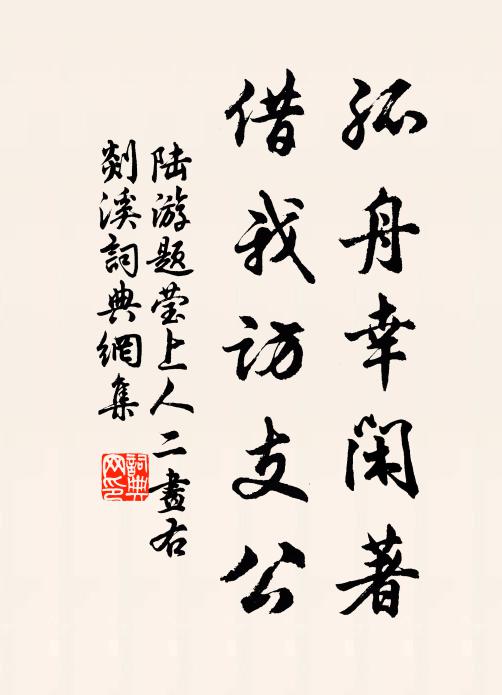 孤舟幸闲著
借我访支公
陆游题莹上人二画右
剡溪詞典網集
詞典网印